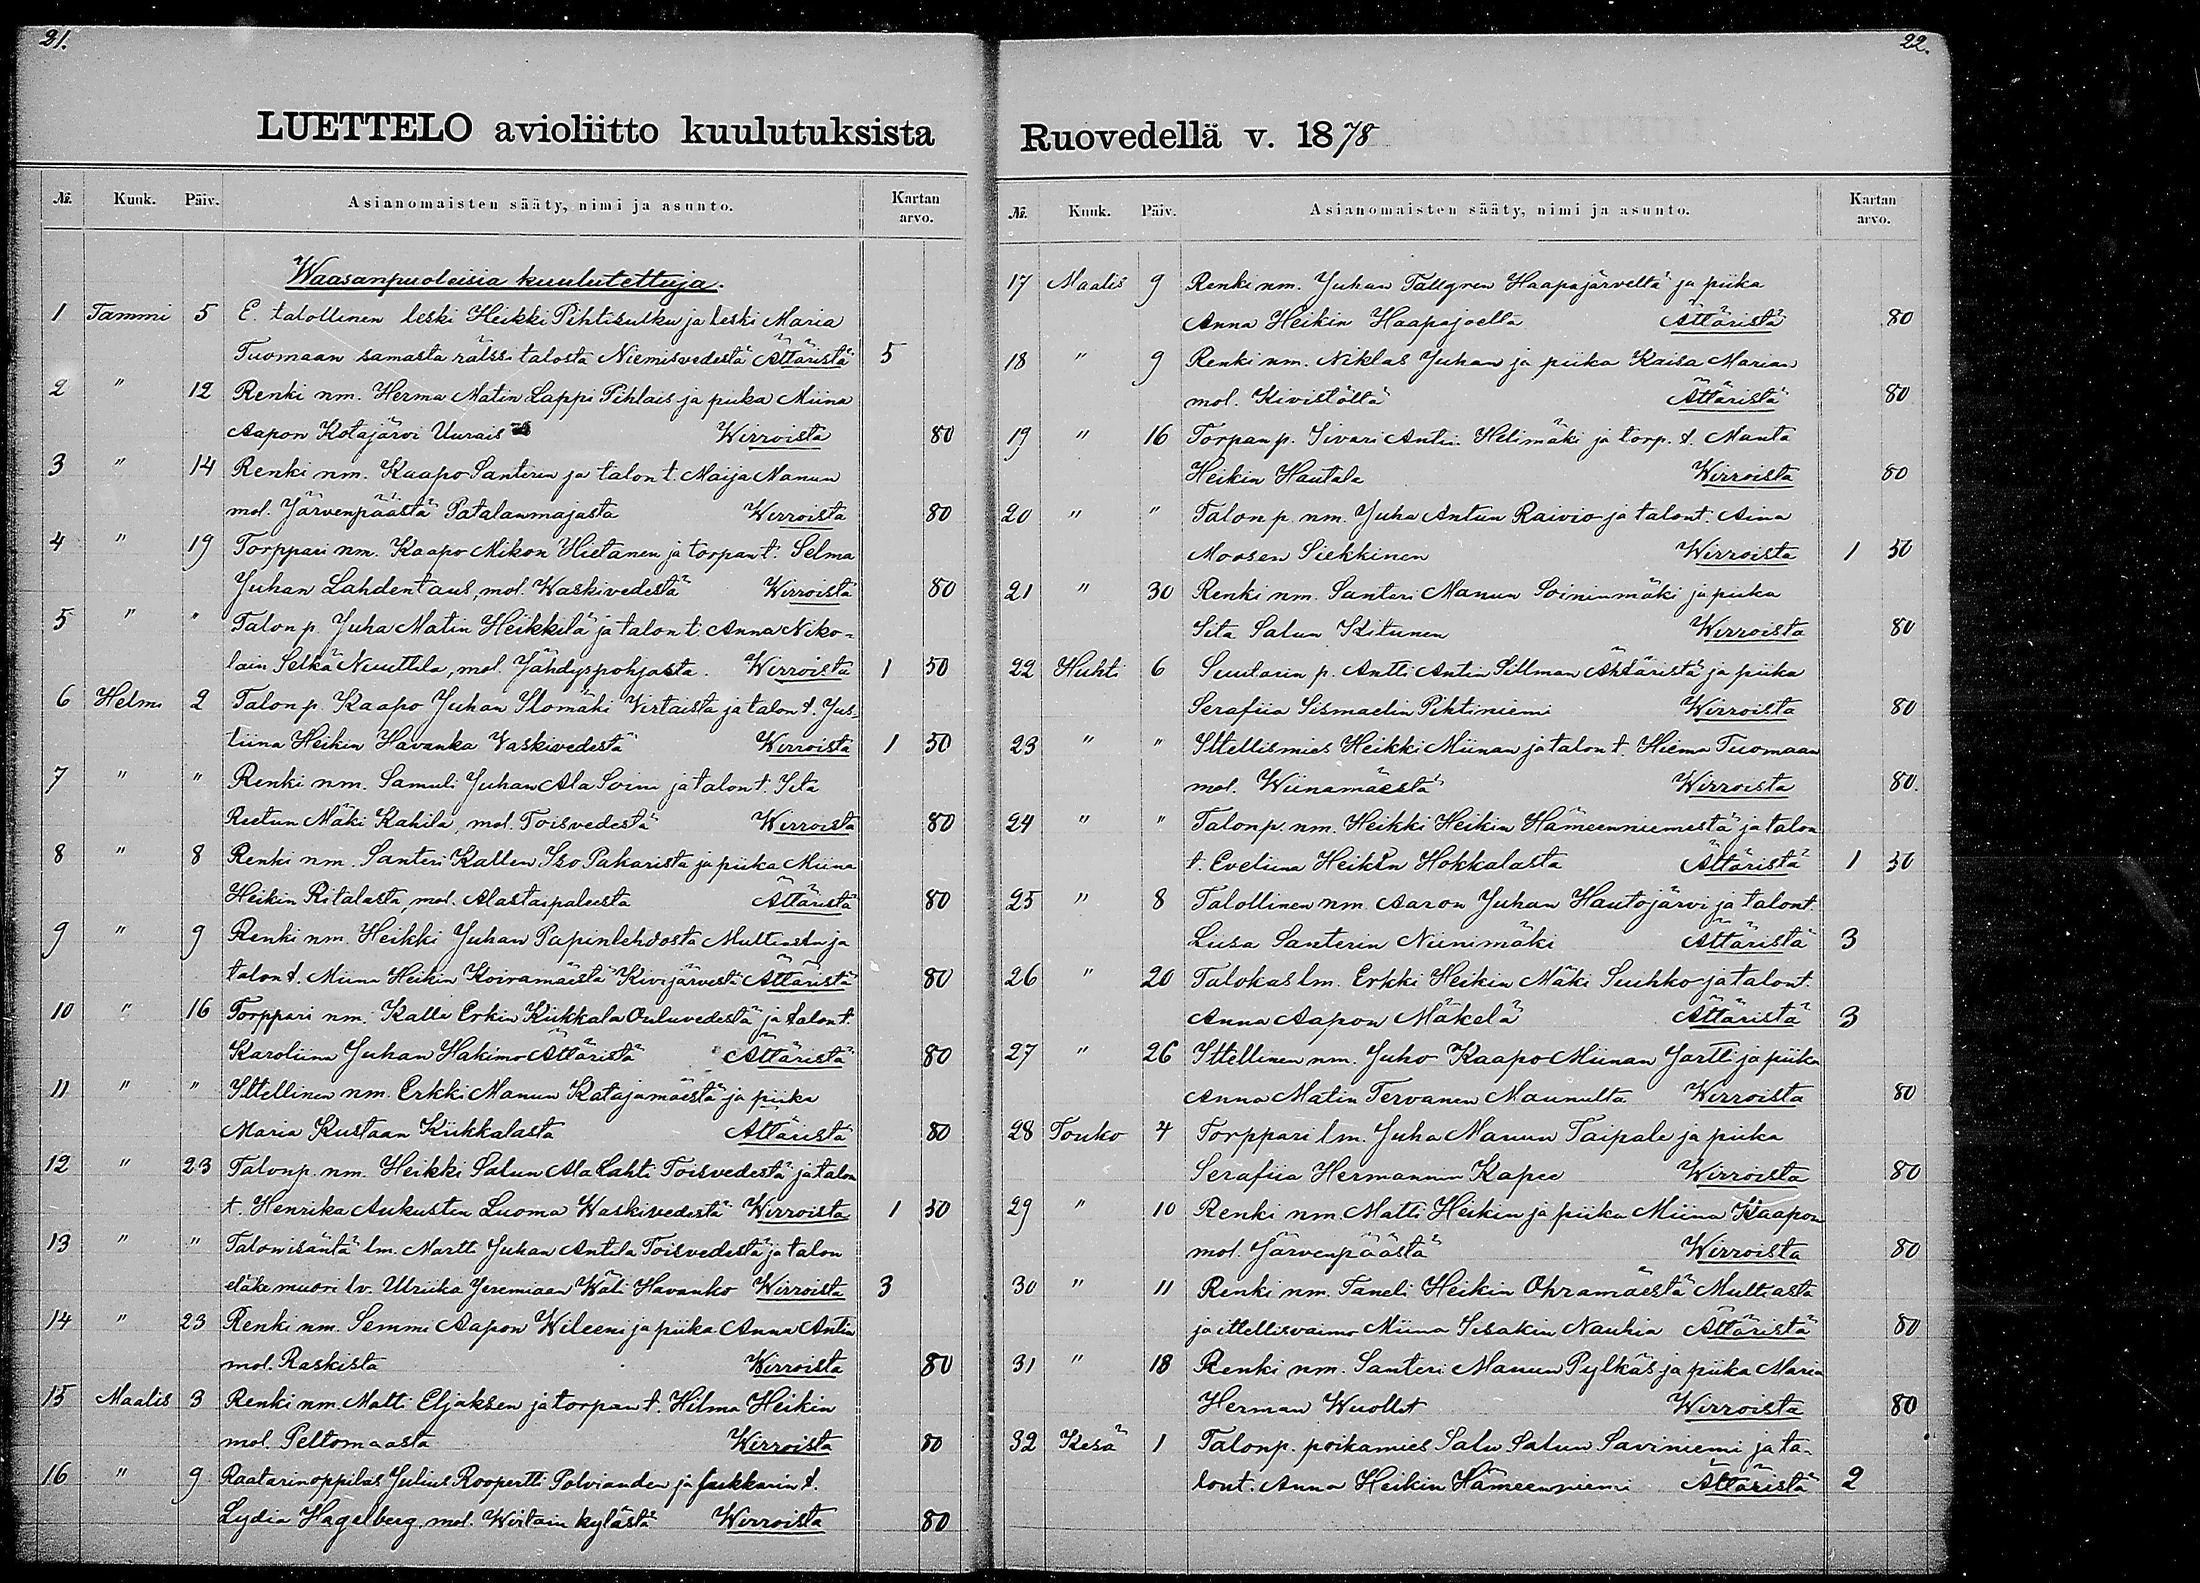 21.
LUETTELO avioliitto kuulutuksista
№. Kuuk. Päiv. Asianomaisten sääty, nimi ja asunto. Kartan arvo.
Waasanpuoleisia kuulutettuja.
1 Tammi 5 E. talollinen leski Heikki Pihtisulku ja leski Maria
Tuomaan samasta rälssi talosta Niemisvedestä Ättäristä 5
2 " 12 Renki nm. Herma Matin Lappi Pihlais ja piika Miina
Aapon Kotajärvi Uurais Wirroista 80
3 " 14 Renki nm. Kaapo Santerin ja talon t. Maija Manun
mol. Järvenpäästä Patalanmajasta Wirroista 80
4 " 19 Torppari nm. Kaapo Mikon Hietanen ja torpan t. Selma
Juhan Lahdentaus, mol. Waskivedestä Wirroista 80
5 " " Talon p. Juha Matin Heikkilä ja talon t. Anna Niko-
lain Selkä Nuuttila, mol. Jähdyspohjasta. Wirroista 1 50
6 Helmi 2 Talon p. Kaapo Juhan Ylömäki Virtaista ja talon t. Jus-
tiina Heikin Havanka Vaskivedestä Wirroista 1 50
7 " " Renki nm. Samuli Juhan Ala Soini ja talon t. Iita
Reetun Mäki Kahila, mol. Toisvedestä Wirroista 80
8 " 8 Renki nm. Santeri Kallen Iso Pakarista ja piika Miina
Heikin Ritalasta, mol. Alastaipaleesta Ättäristä 80
9 " 9 Renki nm. Heikki Juhan Papinlehdosta Multiasta ja
talon t. Miina Heikin Koiramäestä Kivijärvestä Ättäristä 80
10 " 16 Torppari nm. Kalle Erkin Kiikkala Ouluvedestä ja talon t.
Karoliina Juhan Hakimo Ättäristä Ättäristä 80
11 " " Ittellinen nm. Erkki Manun Katajamäestä ja piika
Maria Kustaan Kiikkalasta Ättäristä 80
12 " 23 Talonp. nm. Heikki Salun Ala Lahti Toisvedestä ja talon
t. Henrika Aukustin Luoma Waskivedestä Wirroista 1 50
13 " " Talonisäntä lm. Martti Juhan Antila Toisvedestä ja talon
eläke muori lv. Ulriika Jeremiaan Wäli Havanko Wirroista 3
14 " 23 Renki nm. Semmi Aapon Wileeni ja piika Anna Antin
mol. Raskista Wirroista 80
15 Maalis 3 Renki nm. Matti Eljaksen ja torpan t. Hilma Heikin
mol. Peltomaasta Wirroista 80
16 " 9 Raatarinoppilas Julius Roopertti Polviander ja t.
Lydia Hagelberg mol. Wirtain kylästä Wirroista 80
22.
Ruovedellä v. 1878
№. Kuuk. Päiv. Asianomaisten sääty, nimi ja asunto. Kartan arvo.
17 Maalis 9 Renki nm. Juhan Tallgren Haapajärveltä ja piika
Anna Heikin Haapajoelta Ättäristä 80
18 " 9 Renki nm. Niklas Juhan ja piika Kaisa Marian
mol. Kivistöltä Ättäristä 80
19 " 16 Torpan p. Iivari Antin Helimäki ja torp. t. Manta
Heikin Hautala Wirroista 80
20 " " Talon p. nm. Juha Antun Raivio ja talon t. Aina
Moosen Siekkinen Wirroista 1 50
21 " 30 Renki nm. Santeri Manun Soininmäki ja piika
Iita Salun Kitunen Wirroista 80
22 Huhti 6 Suutarin p. Antti Antin Sillman Ähtäristä ja piika
Serafiia Iismaelin Pihtiniemi Wirroista 80
23 " " Ittellismies Heikki Miinan ja talon t. Hiema Tuomaan
mol. Wiinamäestä Wirroista 80.
24 " " Talonp. nm. Heikki Heikin Hämeenniemestä ja talon
t. Eveliina Heikin Hokkalasta Ättäristä 1 50
25 " 8 Talollinen nm. Aaron Juhan Hautojärvi ja talont.
Liisa Santerin Niinimäki Ättäristä 3
26 " 20 Talokas lm. Erkki Heikin Mäki Suihko ja talont.
Anna Aapon Mäkelä Ättäristä 3
27 " 26 Ittellinen nm. Juho Kaapo Miinan Jartti ja piika
Anna Matin Tervanen Maunulta Wirroista 80
28 Touko 4 Torppari lm. Juha Manun Taipale ja piika
Serafiia Hermannin Kapee Wirroista 80
29 " 10 Renki nm. Matti Heikin ja piika Miina Kaapon
mol. Järvenpäästä Wirroista 80
30 " 11 Renki nm. Taneli Heikin Ohramäestä Multiasta
ja ittellisvaimo Miina Iisakin Nauhia Ättäristä 80
31 " 18 Renki nm. Santeri Manun Pylkäs ja piika Maria
Herman Wuollet Wirroista 80
32 Kesä 1 Talonp. poikamies Salu Salun Saviniemi ja ta-
lont. Anna Heikin Hämeenniemi Ättäristä 2